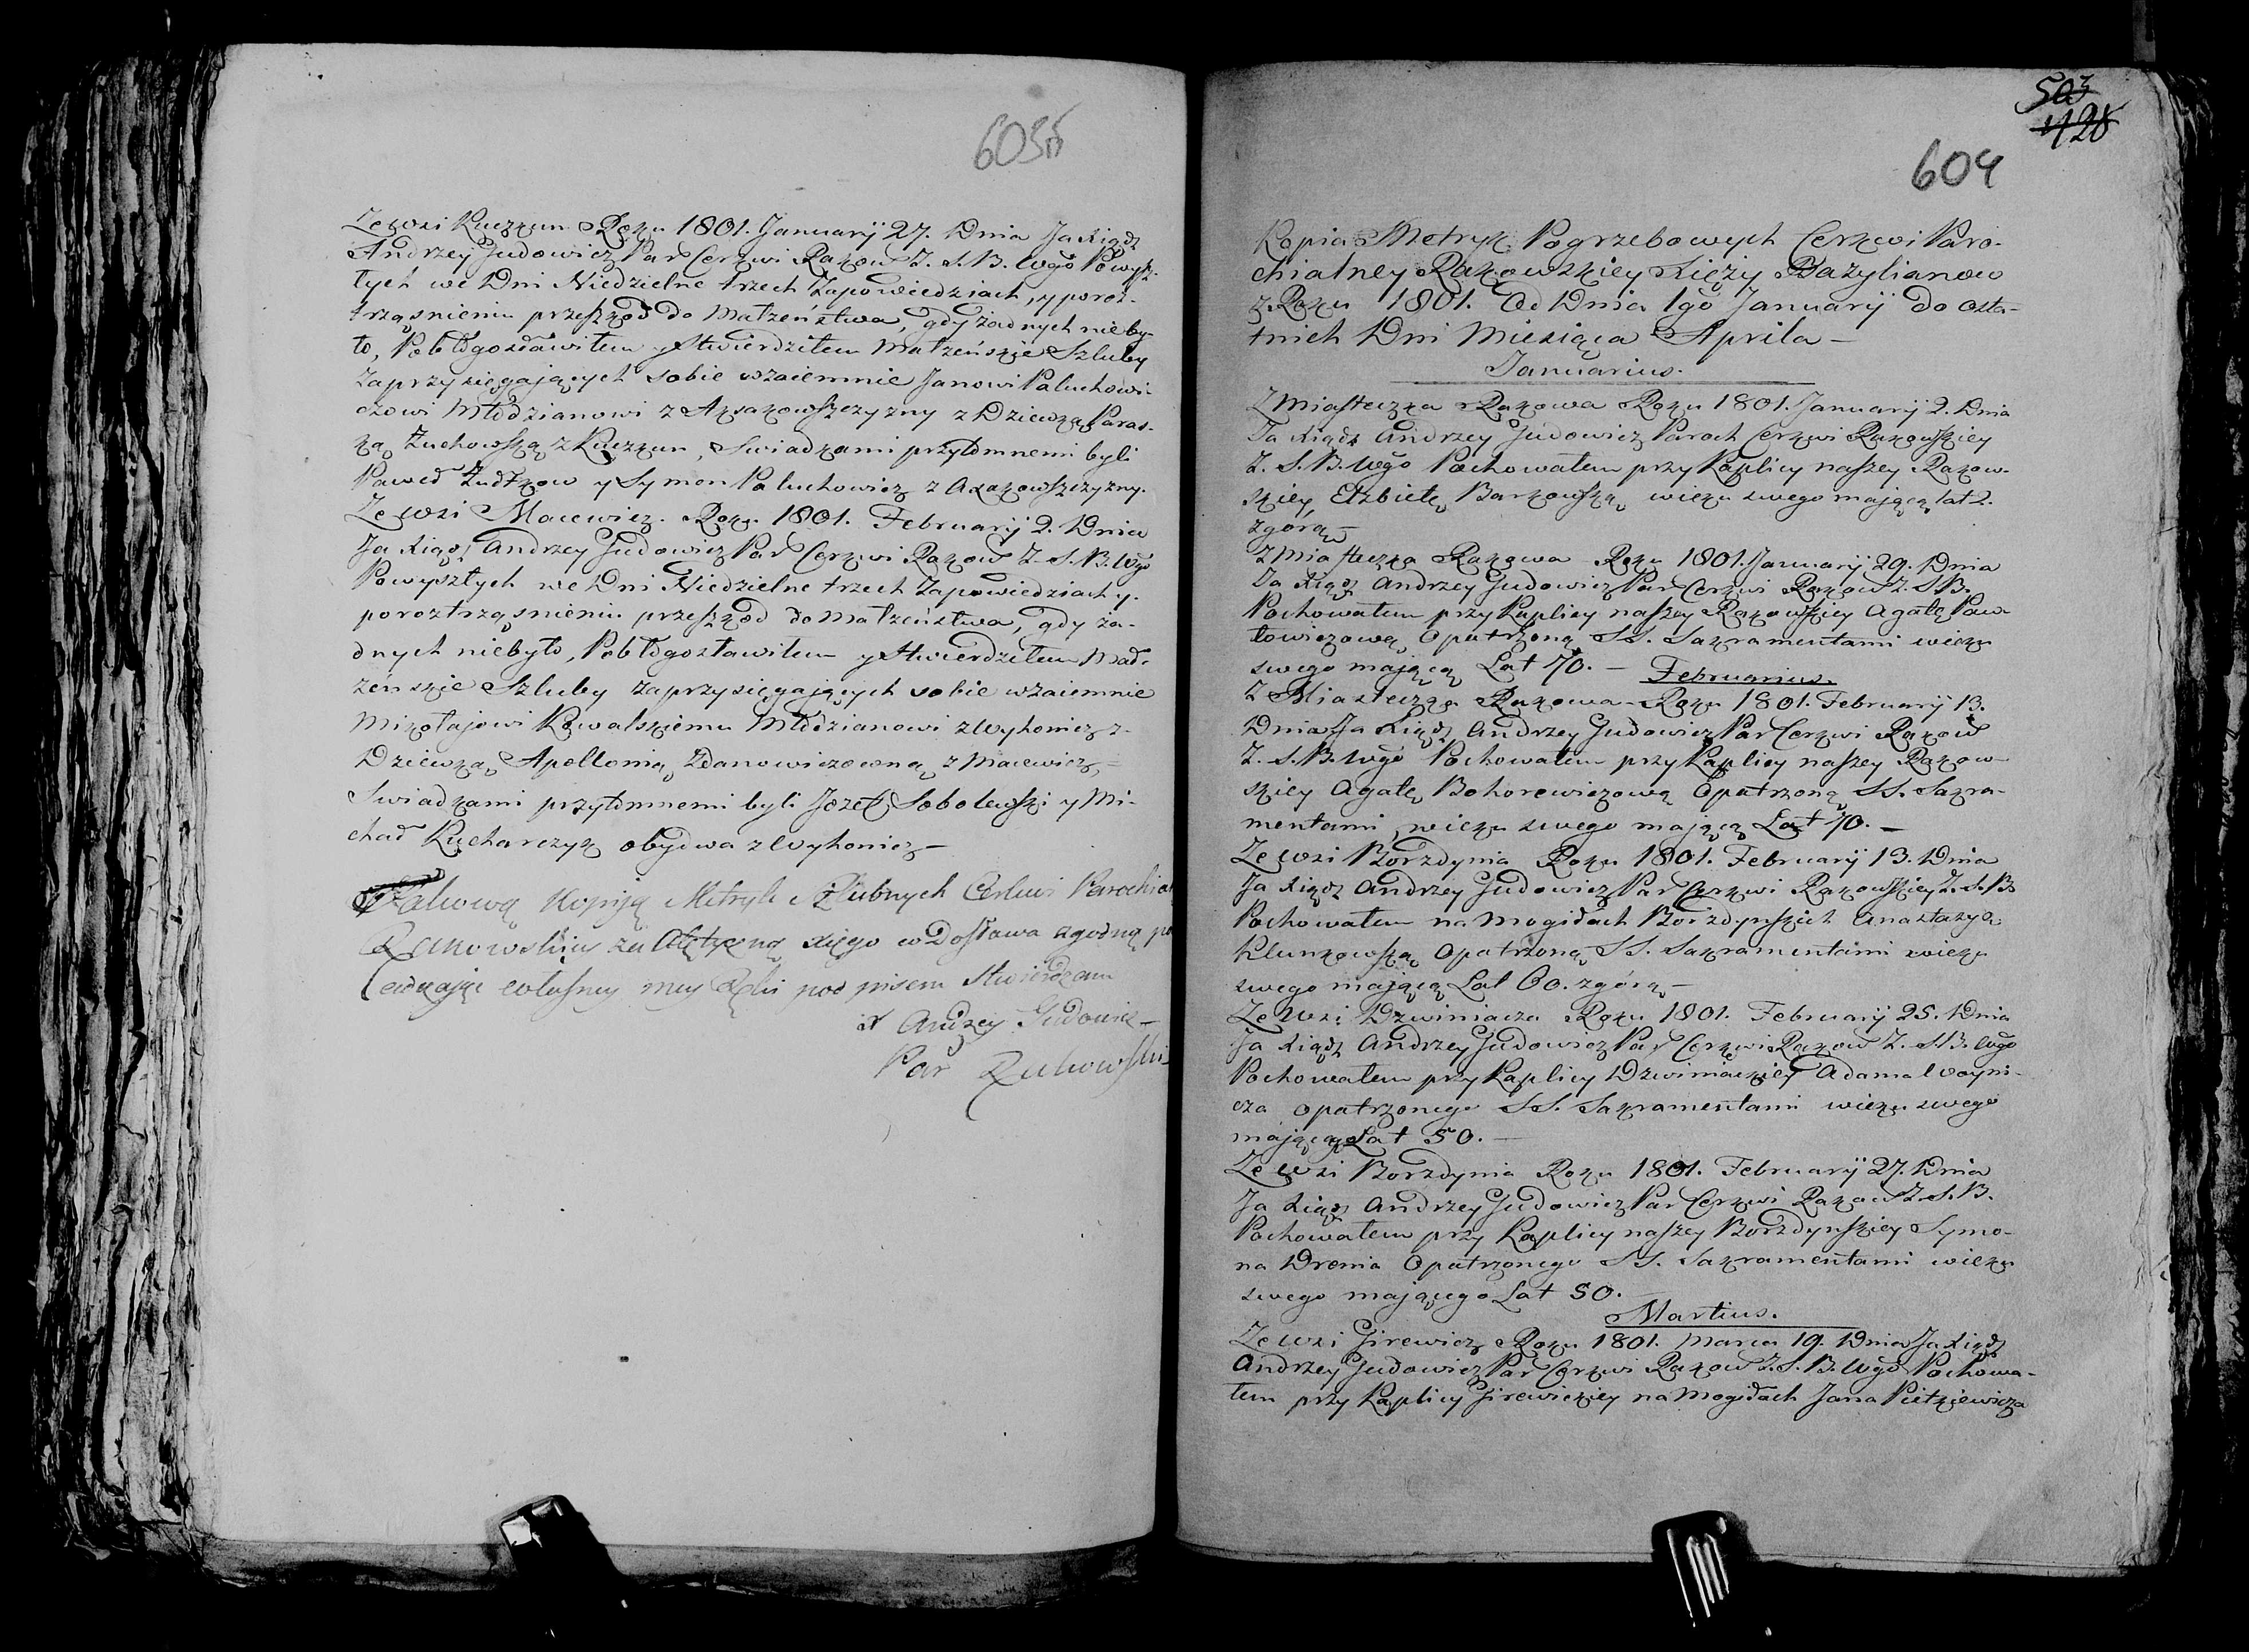 603
Ze Wsi Kuczkun Roku 1801. Januarij 27. Dnia Ja Xiądz
Andrzey Gudowicz Par Cerkwi Rakow Z. S. B. Wgo Powysz-
łych we Dni Niedzielne trzech Zapowiedziach, y poroz-
trząśnieniu przeszkod do Małżeństwa, gdy żadnych nieby-
ło, Pobłogosławiłem y Stwierdziłem Małżeńskie Szluby
zaprzysięgających sobie wzaiemnie Janowi Paluchowi-
czowi Młodzianowi z Axakowszczyzny z Dziewką Paras-
ką Żuchowską z Kuczkun, Swiadkami przytomnemi byli
Paweł y Symon Paluchowicz z Axakowszczyzny.
Ze Wsi Macewicz. Roku 1801. Februarij 2. Dnia
Ja Xiądz Andrzey Gudowicz Par Cerkwi Rakow Z. S. B. Wgo
Powyszłych we Dni Niedzielne trzech Zapowiedziach y
poroztrząśnieniu przeszkod do Małżeństwa, gdy ża-
dnych niebyło, Pobłogosławiłem y Stwierdziłem Mał-
żeńskie Szluby zaprzysięgających sobie wzaiemnie
Mikołajowi Kowalskiemu Młodzianowi z Wyhonicz z
Dziewką Apollonią Zdanowiczowną z Macewicz,
Swiadkami przytomnemi byli Jozef Sobolewski y Mi-
chał Kucharczyk obydwa z Wyhonicz —
Takową Kopiją Metryk Szlubnych Cerkwi Parochial
Rakowskiey za xięgo w Dostawa zgodną
własney mey Ręki pod pisem Stwierdzam
X Andrzey Gudowicz —
Par Rakowski
503
428
604
Kopia Metryk Pogrzebowych Cerkwi Paro-
chialney Rakowskiey Xięży Bazylianow
z Roku 1801. Od Dnia 1go Januarij do osta-
tnich Dni Miesiąca Aprila —
Januarius.
Z Miasteczka Rakowa Roku 1801. Januarij 2. Dnia
Ja Xiądz Andrzey Gudowicz Paroch Cerkwi Rakowskiey
Z. S. B. Wgo Pochowałem przy Kaplicy naszey Rakow-
skiey Elżbietę Barkowską wieku swego mającą lat 2.
zgórą —
Z Miasteczka Rakowa Roku 1801. Januarij 29. Dnia
Ja Xiądz Andrzey Gudowicz Par Cerkwi Rakow Z. S. B.
Pochowałem przy Kaplicy naszey Rakowskiey Agatę Paw-
łowiczową Opatrzoną SS. Sakramentami wieku
swego mającą Lat 70. — Februarius.
Z Miasteczka Rakowa Roku 1801. Februarij 13.
Dnia Ja Xiądz Andrzey Gudowicz Par Cerkwi Rakow
Z. S. B. Wgo Pochowałem przy Kaplicy naszey Rakow-
skiey Agatę Bohorewiczową Opatrzoną SS. Sakra-
mentami wieku swego mającą Lat 70. —
Ze Wsi Borzdynia Roku 1801. Februarij 13. Dnia
Ja Xiądz Andrzey Gudowicz Par Cerkwi Rakowskiey Z. S. B.
Pochowałem na Mogiłach Borzdynskich Anastazyą
Klunkowską Opatrzoną SS. Sakramentami wieku
swego mającą Lat 60. zgórą —
Ze Wsi Dzwiniacza Roku 1801. Februarij 25. Dnia
Ja Xiądz Andrzey Gudowicz Par Cerkwi Rakow Z. S. B. Wgo
Pochowałem przy Kaplicy Dzwiniackiey Adama Woyni-
cza Opatrzonego SS. Sakramentami wieku swego
mającego Lat 50. —
Ze Wsi Borzdynia Roku 1801. Februarij 27. Dnia
Ja Xiądz Andrzey Gudowicz Par Cerkwi Rakow Z. S. B.
Pochowałem przy Kaplicy naszey Borzdynskiey Symo-
na Drenia Opatrzonego SS. Sakramentami wieku
swego mającego Lat 50.
Martius.
Ze Wsi Girewicz Roku 1801. Marca 19. Dnia Ja Xiądz
Andrzey Gudowicz Par Cerkwi Rakow Z. S. B. Wgo Pochowa-
łem przy Kaplicy Girewickiey na Mogiłach Jana Pietkiewicza